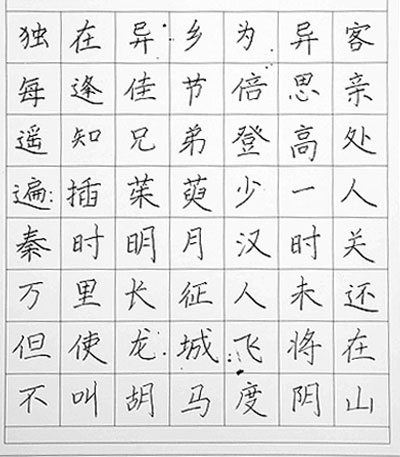 独在异乡为异客
每逢佳节倍思亲
遥知兄弟登高处
遍插茱萸少一人
秦时明月汉时关
万里长征人未还
但使龙城飞将在
不叫胡马度阴山